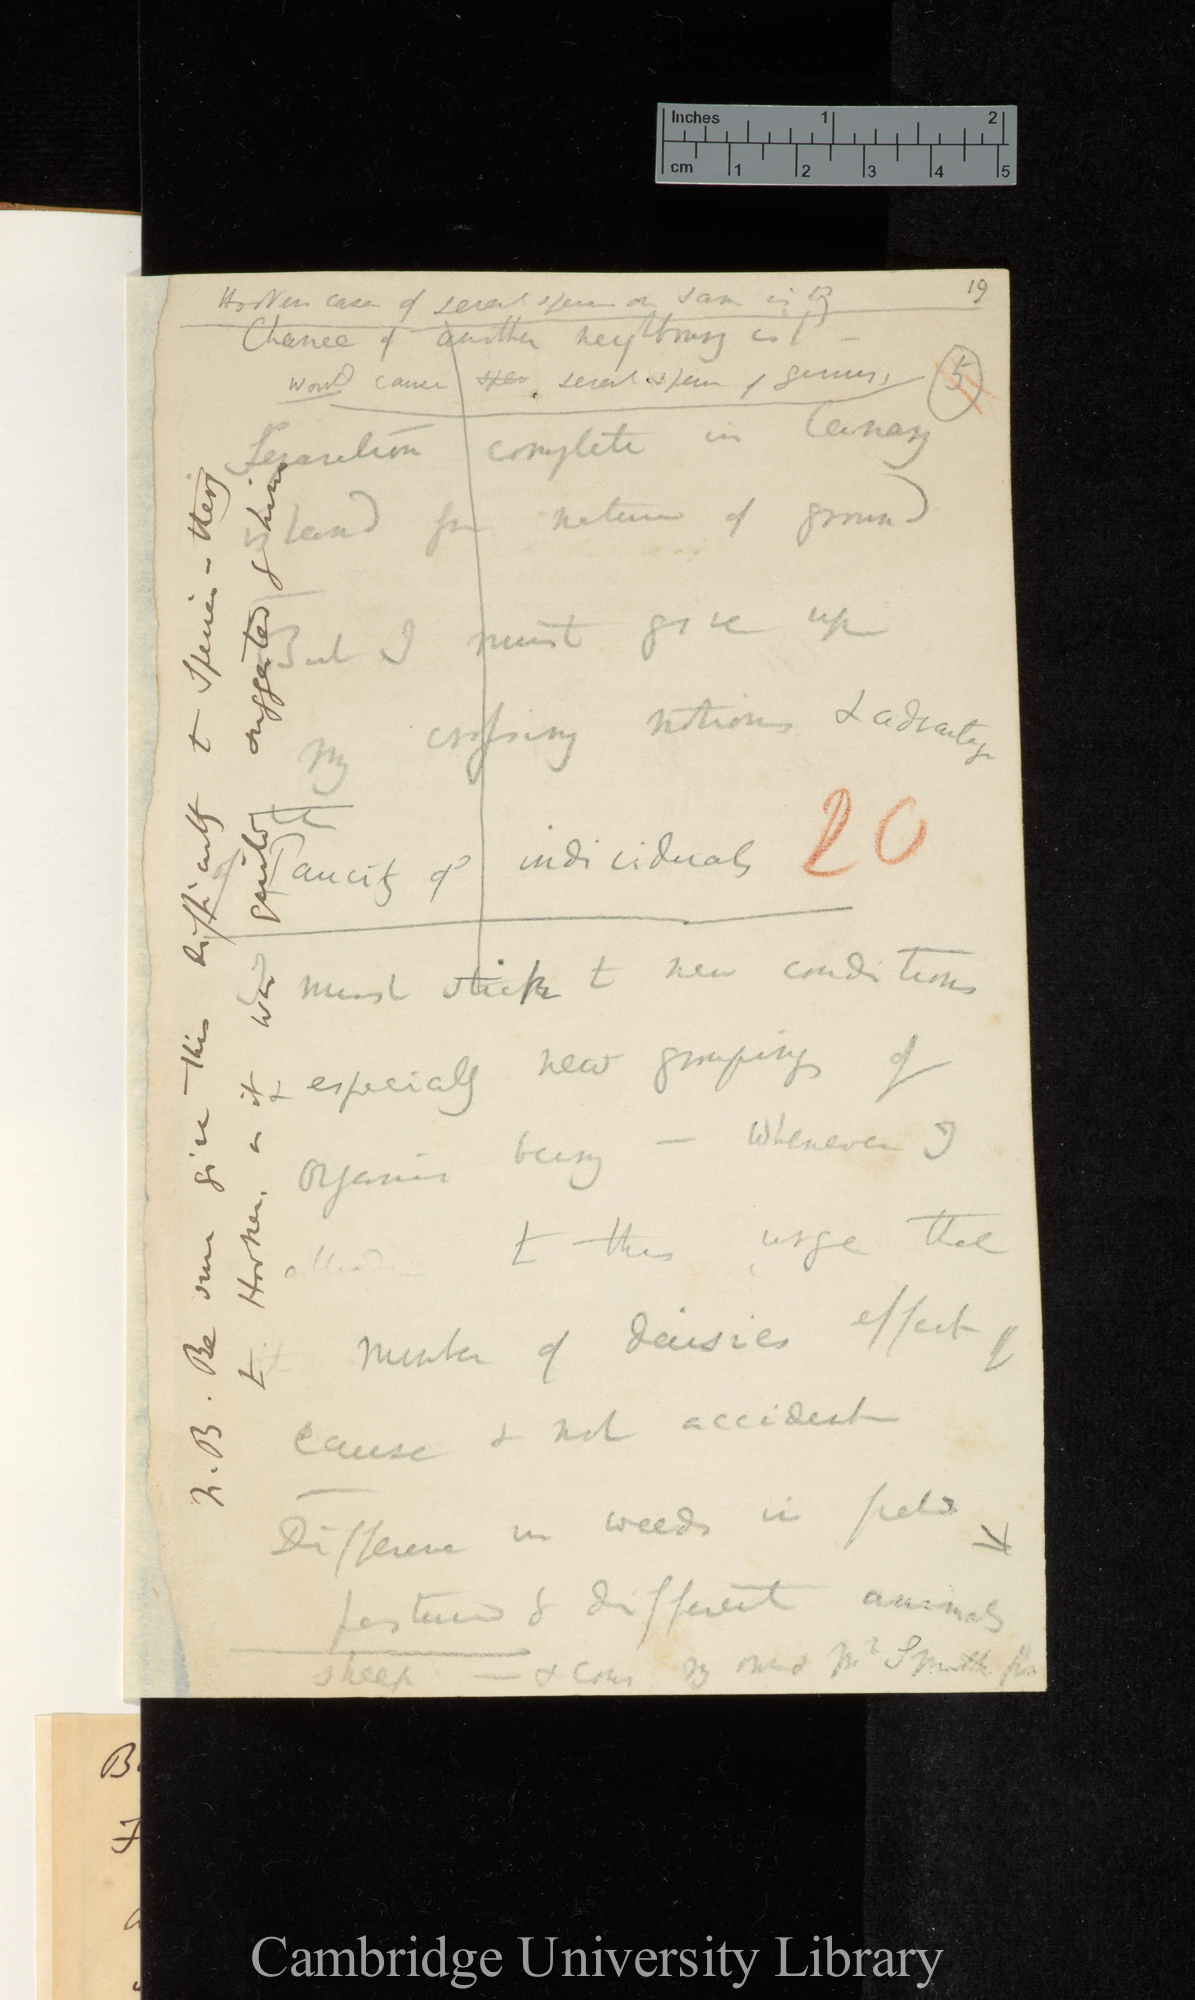 Inches 1 2
cm 1 2 3 4 5
19
Hooker case of several species on same isd
Chance of another neighbouring isd —
would cause several species of genus,
5
Separation complete in Canary
island from nature of ground
But I must give up
my crossing notions & advantage
of
Paucity of individuals
20
must stick to new conditions
& especially new groupings of
organic being — Whenever I
allude to this urge that
it number of daisies effect of
cause & not accident
Difference in weeds in field
pastured by different animals
sheep — & cows my own & Mr Smith
N.B. Be sure give this difficulty to Species-theory
to Hooker, as it was quite suggested by him
Cambridge University Library